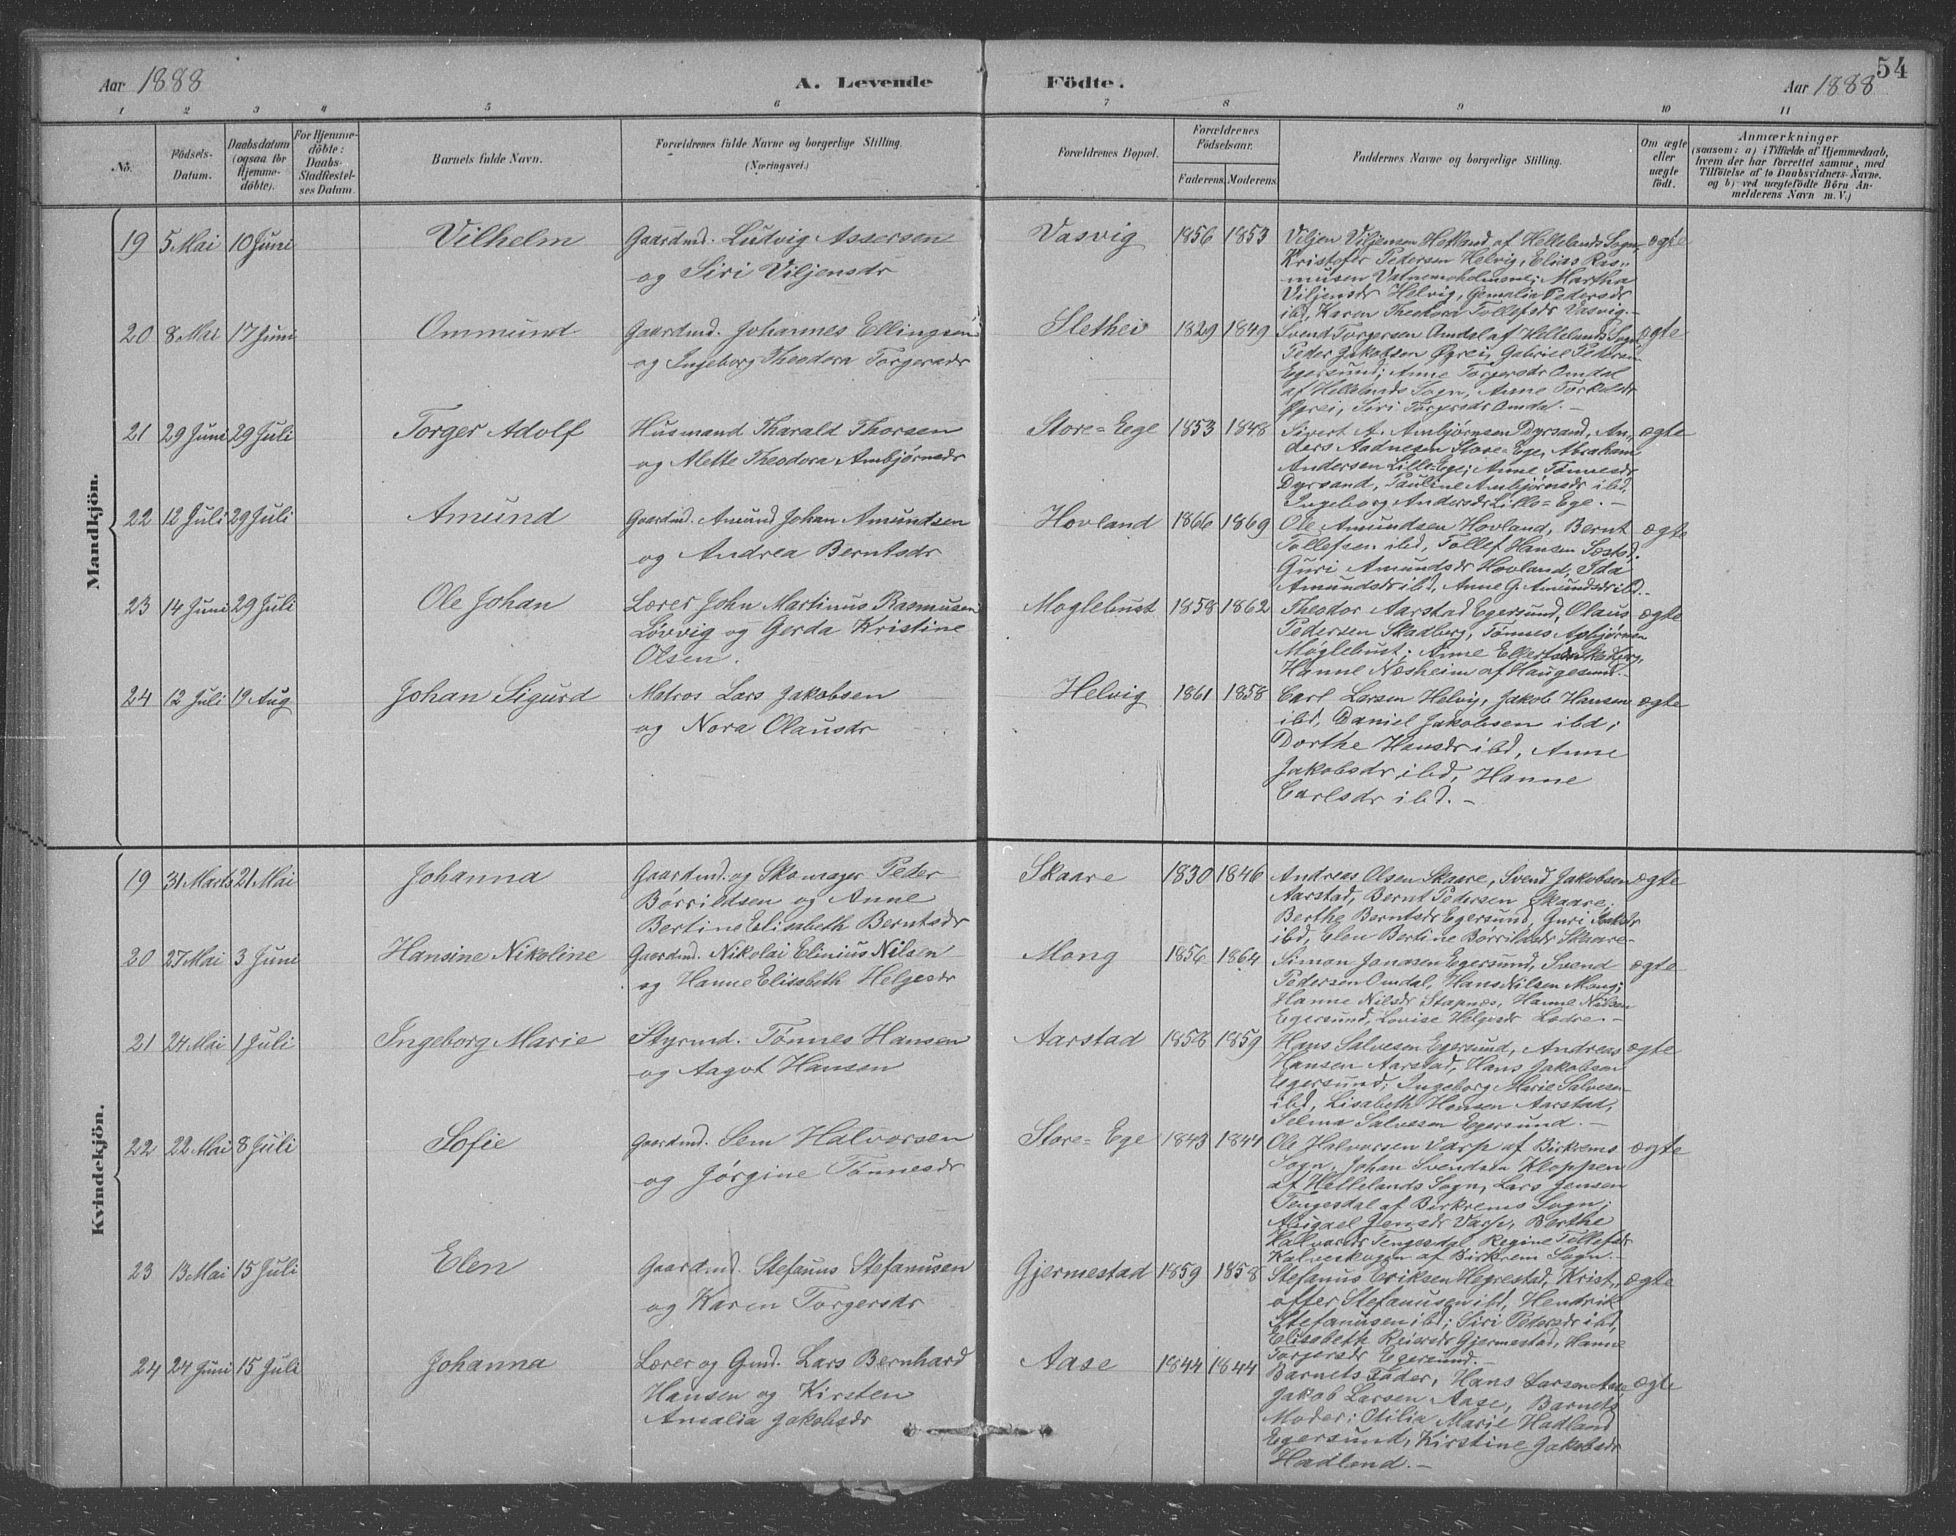 54
Aar 1888
A. Levende Födte.
Aar 1888
1 2 3 4 5 6 7 8 9 10 11
No.
Födsels-Datum.
Daabsdatum (ogsaa for Hjemme-döbte).
For Hjemme-döbte: Daabs-Stadfæstel-ses Datum.
Barnets fulde Navn.
Forældrenes fulde Navne og borgerlige Stilling. (Næringsvei.)
Forældrenes Bopæl.
Forældrenes Födselsaar.
Faderens. Moderens.
Faddernes Navne og borgerlige Stilling.
Om ægte eller uægte födt.
Anmærkninger
(saasom: a) i Tilfælde af Hjemmedaab,
hvem der har forrettet samme, med
Tilföielse af to Daabsvidners Navne.
og b) ved uægtefödte Börn An-
melderens Navn m. V.)
Mandkjön.
19 5 Mai 10 Juni Vilhelm Gaardmd. Lutvig Assersen
og Siri Viljensdr
Vasvig 1856 1853 Viljen Viljensen Helland af Hellelands Sogn ægte
Kristofer Pedersen Helvig, Elias Ras-
musen Vatnemoholmene; Martha
Viljensdr Helvig, Gemalia Pedersdr
ibd, Karen Theodora Tollefsdr Vasvig.-
20 8 Mai 17 Juni Ommund Gaardmd. Johannes Ellingsen
og Ingeborg Theodora Torgersdr
Slethei 1829 1849 Svend Torgersen Omdal af Hellelands Sogn ægte
Peder Jakobsen Øgrei, Gabriel Pedersen
Egersund; Anne Torgersdr Omdal
af Hellelands Sogn, Anne Torkelsdr
Øgrei, Siri Torgersdr Omdal.-
21 29 Juni 29 Juli Torger Adolf Husmand Tharald Thorsen
og Alette Theodora Ambjørnsdr
Store=Ege 1853 1848 Sivert A. Ambjørnsen Dyrsand, An- ægte
ders Aadnesen Store=Ege, Abraham
Andersen Lille=Ege; Anne Tønnesdr
Dyrsand, Pauline Ambjørnsdr ibd,
Ingeborg Andersdr Lille=Ege.-
22 12 Juli 29 Juli Amund Gaardmd. Amund Johan Amundsen
og Andrea Berntsdr
Hovland 1866 1869 Ole Amundsen Hovland, Bernt ægte
Tollefsen ibd, Tollef Hansen
Guri Amundsdr Hovland, Ida
Amundsdr ibd, Anne G. Amundsdr ibd.-
23 14 Juni 29 Juli Ole Johan Lærer John Martinus Rasmusen
Løvvig og Gerda Kristine
Olsen.
Moglebust 1858 1862 Theodor Aarstad Egersund, Olaus ægte
Pedersen Skadberg, Tønnes Asbjørnsen
Møglebust; Anne
Hanne Næsheim af Haugesund.-
24 12 Juli 19 Aug Johan Sigurd Matros Lars Jakobsen
og Nora Olausdr
Helvig 1861 1858 Carl Larsen Helvig, Jakob Hansen ægte
ibd, Daniel Jakobsen ibd;
Dorthe Hansdr ibd, Anne
Jakobsdr ibd, Hanne
Carlsdr ibd.-
Kvindekjön.
19 31 Marts 21 Mai Johanna Gaardmd. og Skomager Peder
Børrildsen og Anne
Bertine Elisabeth Berntsdr
Skaare 1830 1846 Andreas Olsen Skaare, Svend Jakobsen ægte
Aarstad, Bernt Pedersen Skaare;
Berthe Berntsdr Egersund, Guri
ibd, Elen Bertine Børrildsdr Skaare-
20 27 Mai 3 Juni Hansine Nikoline Gaardmd. Nikolai Elinius Nilsen
og Hanne Elisabeth Helgesdr
Mong 1856 1864 Simon Jonassen Egersund, Svend ægte
Pedersen Omdal, Hans Nilsen Mong;
Hanne Nilsdr Stapnæs, Hanne Nilsen
Egersund, Lovise Helgesdr Lædre.-
21 24 Mai 1 Juli Ingeborg Marie Styrmd. Tønnes Hansen
og Aagot Hansen
Aarstad 1858 1859 Hans Salvesen Egersund, Andreas ægte
Hansen Aarstad, Hans Jakobsen
Egersund; Ingeborg Marie Salvesen
ibd, Lisabeth Hansen Aarstad,
Selma Salvesen Egersund.-
22 22 Mai 8 Juli Sofie Gaardmd. Sem Halvorsen
og Jørgine Tønnesdr
Store=Ege 1843 1844 Ole Halvorsen Varp af Birkrems ægte
Sogn, Johan Svendsen Kloppen
af Hellelands Sogn, Lars Jensen
Tengesdal af Birkrems Sogn;
Abigael Jensdr Varp, Berthe
Halvorsdr Tengesdal, Regine Tollefsdr
Kalveskogen af Birkrem Sogn.-
23 13 Mai 15 Juli Elen Gaardmd. Stefanus Stefanusen
og Karen Torgersdr
Gjermestad 1859 1858 Stefanus Eriksen Hegrestad, Krist- ægte
offer Stefanusen ibd, Hendrik
Stefanusen ibd; Siri Pedersdr ibd,
Elisabeth Reiersdr Gjermestad, Hanne
Torgersdr Egersund.-
24 24 Juni 15 Juli Johanna Lærer og Gmd. Lars Bernhard
Hansen og Kirsten
Amalia Jakobsdr
Aase 1844 1844 Barnets Fader, Hans Larsen Aase ægte
Jakob Larsen Aase, Barnets
Moder; Otilia Marie Hadland
Egersund, Kirstine Jakobsdr
Hadland.-